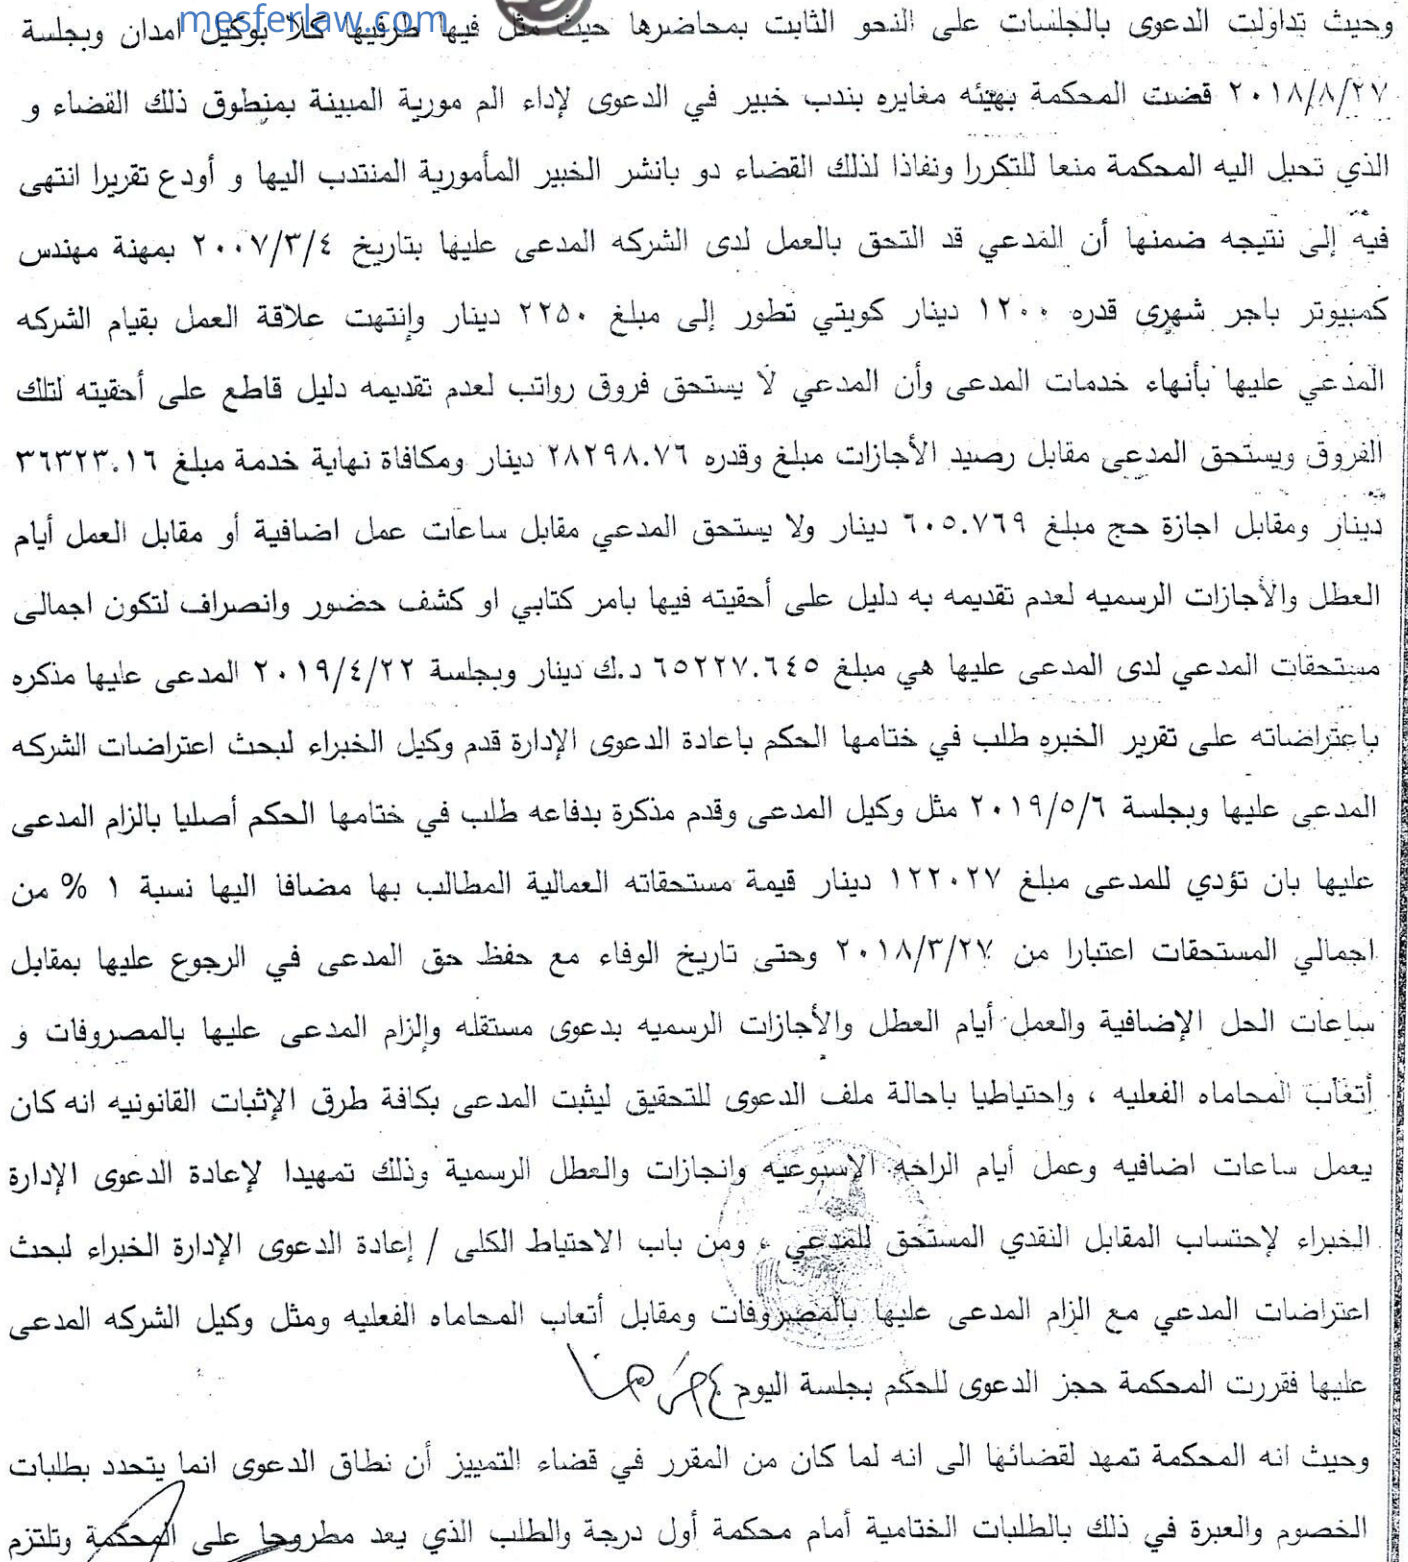 mesferlaw.com
وحيث تداولت الدعوى بالجلسات على النحو الثابت بمحاضرها حيث مثل فيها طرفيها كلا بوكيل امدان وبجلسة
٢٠١٨/٨/٢٧ قضت المحكمة بهيئه مغايره بندب خبير في الدعوى لإداء الم مورية المبينة بمنطوق ذلك القضاء و
الذي تحيل اليه المحكمة منعا للتكررا ونفاذا لذلك القضاء دو بانشر الخبير المأمورية المنتدب اليها و أودع تقريرا انتهى
فيه إلى نتيجه ضمنها أن المدعي قد التحق بالعمل لدى الشركه المدعى عليها بتاريخ ٢٠٠٧/٣/٤ بمهنة مهندس
كمبيوتر باجر شهرى قدره ١٢٠٠ دينار كويتي تطور إلى مبلغ ٢٢٥٠ دينار وإنتهت علاقة العمل بقيام الشركه
المدعي عليها بأنهاء خدمات المدعى وأن المدعي لا يستحق فروق رواتب لعدم تقديمه دليل قاطع على أحقيته لتلك
الفروق ويستحق المدعى مقابل رصيد الأجازات مبلغ وقدره ٢٨٢٩٨.٧٦ دينار ومكافاة نهاية خدمة مبلغ ٣٦٣٢٣.١٦
دينار ومقابل اجازة حج مبلغ ٦٠٥.٧٦٩ دينار ولا يستحق المدعي مقابل ساعات عمل اضافية أو مقابل العمل أيام
العطل والأجازات الرسميه لعدم تقديمه به دليل على أحقيته فيها بامر كتابي او كشف حضور وانصراف لتكون اجمالى
مستحقات المدعي لدى المدعى عليها هي مبلغ ٦٥٢٢٧.٦٤٥ د.ك دينار وبجلسة ٢٠١٩/٤/٢٢ المدعى عليها مذكره
باعتراضاته على تقرير الخبره طلب في ختامها الحكم باعادة الدعوى الإدارة قدم وكيل الخبراء لبحث اعتراضات الشركه
المدعى عليها وبجلسة ٢٠١٩/٥/٦ مثل وكيل المدعى وقدم مذكرة بدفاعه طلب في ختامها الحكم أصليا بالزام المدعى
عليها بان تؤدي للمدعى مبلغ ١٢٢٠٢٧ دينار قيمة مستحقاته العمالية المطالب بها مضافا اليها نسبة ١ % من
اجمالي المستحقات اعتبارا من ٢٠١٨/٣/٢٧ وحتى تاريخ الوفاء مع حفظ حق المدعى في الرجوع عليها بمقابل
ساعات الحل الإضافية والعمل أيام العطل والأجازات الرسميه بدعوى مستقله وإلزام المدعى عليها بالمصروفات و
أتعاب المحاماه الفعليه ، واحتياطيا باحالة ملف الدعوى للتحقيق ليثبت المدعى بكافة طرق الإثبات القانونيه انه كان
يعمل ساعات اضافيه وعمل أيام الراحه الإسبوعيه وانجازات والعطل الرسمية وذلك تمهيدا لإعادة الدعوى الإدارة
الخبراء لإحتساب المقابل النقدي المستحق للمدعي ، ومن باب الاحتياط الكلى / إعادة الدعوى الإدارة الخبراء لبحث
اعتراضات المدعي مع الزام المدعى عليها بالمصروفات ومقابل أتعاب المحاماه الفعليه ومثل وكيل الشركه المدعى
عليها فقررت المحكمة حجز الدعوى للحكم بجلسة اليوم
وحيث انه المحكمة تمهد لقضائها الى انه لما كان من المقرر في قضاء التمييز أن نطاق الدعوى انما يتحدد بطلبات
الخصوم والعبرة في ذلك بالطلبات الختامية أمام محكمة أول درجة والطلب الذي يعد مطروحا على المحكمة وتلتزم